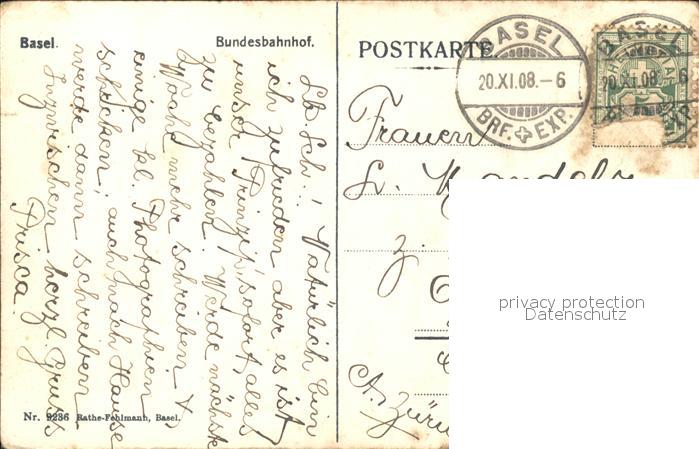 Basel.
Bundesbahnhof.
POSTKARTE.
BASEL
20.XI.08.-6
BRF. EXP.
BASEL
20.XI.08.-6
Frauen
z.
A. Züri
privacy protection
Datenschutz
Lb. Sch.! Natürlich bin
ich zufrieden aber es ist
unser Prinzip, sofort alles
zu bezahlen. Werde nächste
Woche mehr schreiben &
einige bel. Photographien
schicken; auch nach Hause
werde dann schreiben.
Inzwischen herzl. Gruss
Prisca.
Nr. 9236 Rathe-Fehlmann, Basel.